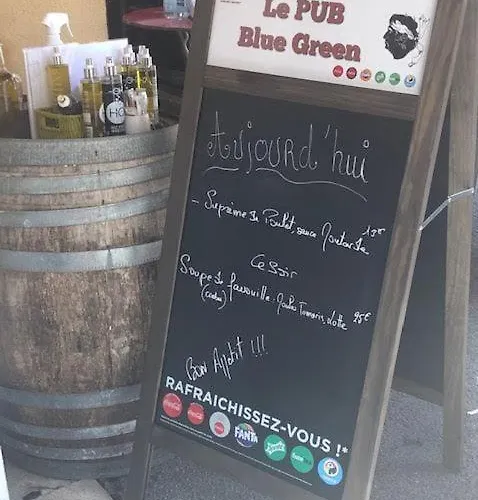 Le PUB
Blue Green
Aujourd'hui
- Suprême de Poulet, sauce Moutarde 13€
Ce Soir
Soupe de favouille. Moules Tomaris, Lotte 25€
Bon Appetit !!!
RAFRAICHISSEZ-VOUS !*
FANTA